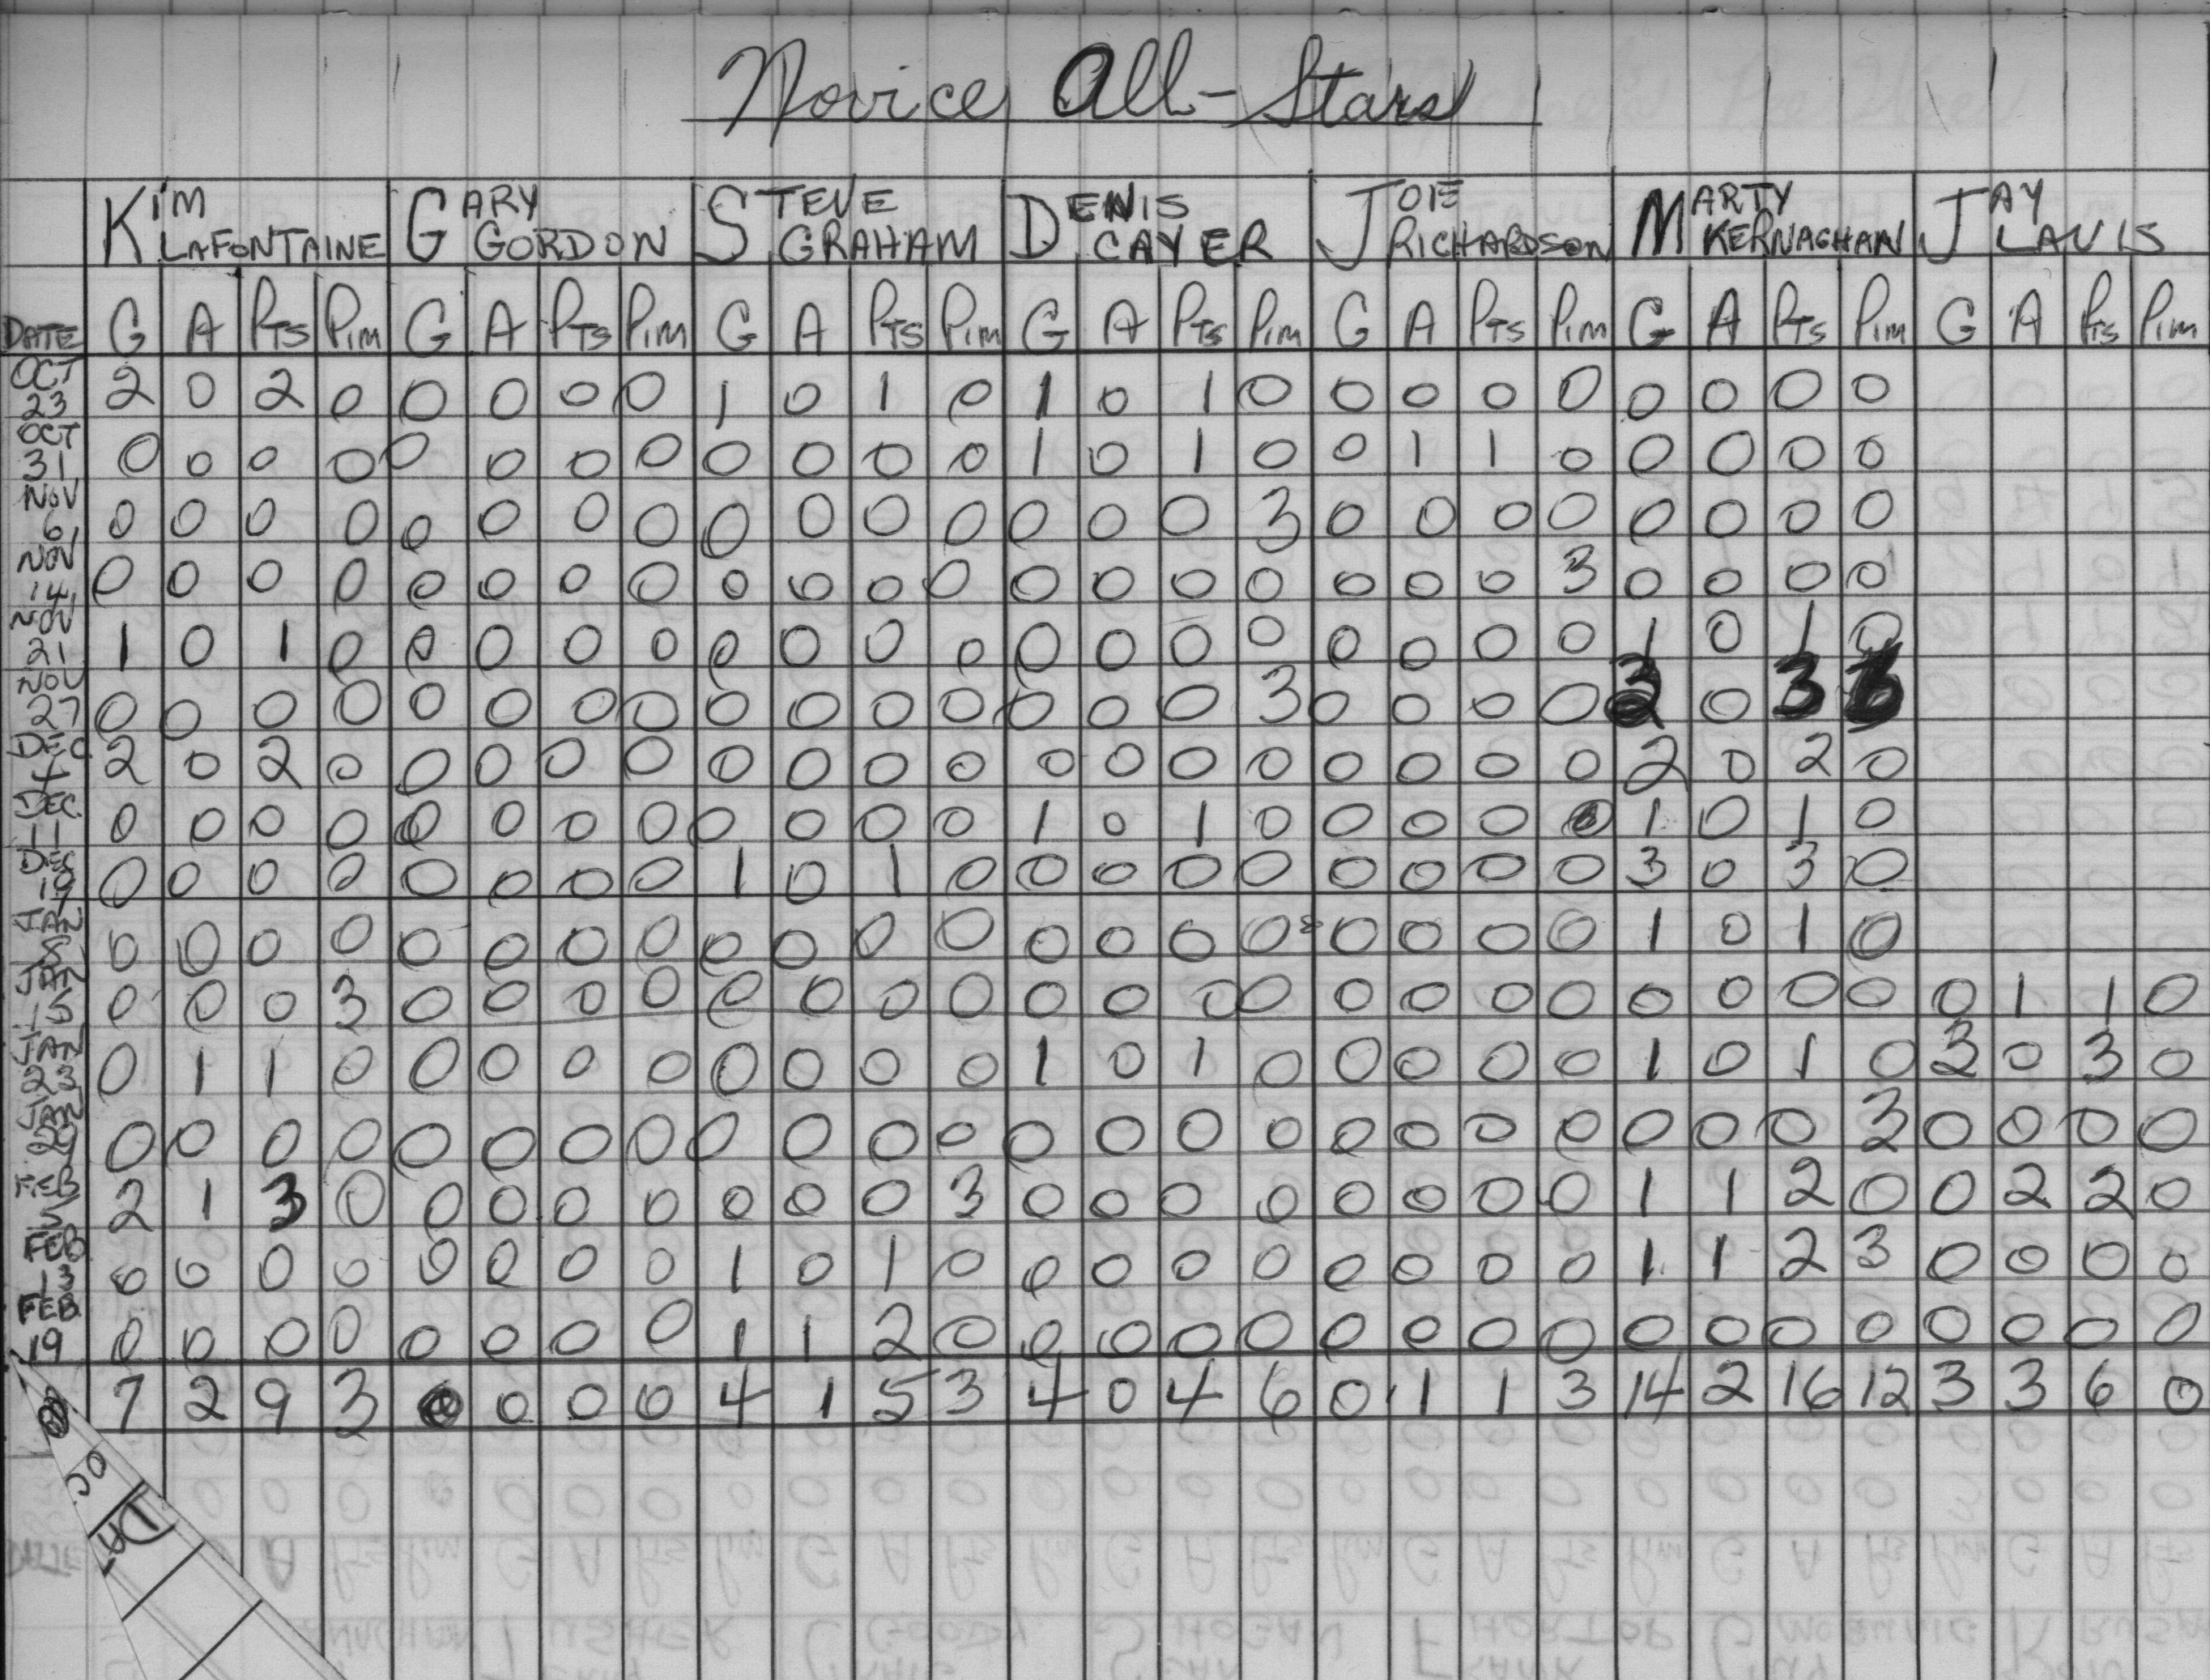 Novice All-Stars
KIM LAFONTAINE GARY GORDON STEVE GRAHAM DENIS CAYER JOIE RICHARDSON MARTY KERNAGHAN JAY LAVIS
DATE G A PTS PIM G A PTS PIM G A PTS PIM G A PTS PIM G A PTS PIM G A PTS PIM G A PTS PIM
OCT 23 2 0 2 0 0 0 0 0 1 0 1 0 1 0 1 0 0 0 0 0 0 0 0 0
OCT 31 0 0 0 0 0 0 0 0 0 0 0 0 1 0 1 0 0 1 1 0 0 0 0 0
NOV 6 0 0 0 0 0 0 0 0 0 0 0 0 0 0 0 3 0 0 0 0 0 0 0 0
NOV 14 0 0 0 0 0 0 0 0 0 0 0 0 0 0 0 0 0 0 0 3 0 0 0 0
NOV 21 1 0 1 0 0 0 0 0 0 0 0 0 0 0 0 0 0 0 0 0 1 0 1 0
NOV 27 0 0 0 0 0 0 0 0 0 0 0 0 0 0 0 3 0 0 0 0 3 0 3
DEC 4 2 0 2 0 0 0 0 0 0 0 0 0 0 0 0 0 0 0 0 0 2 0 2 0
DEC. 11 0 0 0 0 0 0 0 0 0 0 0 0 1 0 1 0 0 0 0 0 1 0 1 0
DEC 19 0 0 0 0 0 0 0 0 1 0 1 0 0 0 0 0 0 0 0 0 3 0 3 0
JAN 8 0 0 0 0 0 0 0 0 0 0 0 0 0 0 0 0 0 0 0 0 1 0 1 0
JAN 15 0 0 0 3 0 0 0 0 0 0 0 0 0 0 0 0 0 0 0 0 0 0 0 0 0 1 1 0
JAN 23 0 1 1 0 0 0 0 0 0 0 0 0 1 0 1 0 0 0 0 0 1 0 1 0 3 0 3 0
JAN 29 0 0 0 0 0 0 0 0 0 0 0 0 0 0 0 0 0 0 0 0 0 0 0 3 0 0 0 0
FEB 5 2 1 3 0 0 0 0 0 0 0 0 3 0 0 0 0 0 0 0 0 1 1 2 0 0 2 2 0
FEB 13 0 0 0 0 0 0 0 0 1 0 1 0 0 0 0 0 0 0 0 0 1 1 2 3 0 0 0 0
FEB 19 0 0 0 0 0 0 0 0 1 1 2 0 0 0 0 0 0 0 0 0 0 0 0 0 0 0 0 0
7 2 9 3 0 0 0 0 4 1 5 3 4 0 4 6 0 1 1 3 14 2 16 12 3 3 6 0
OC
DA